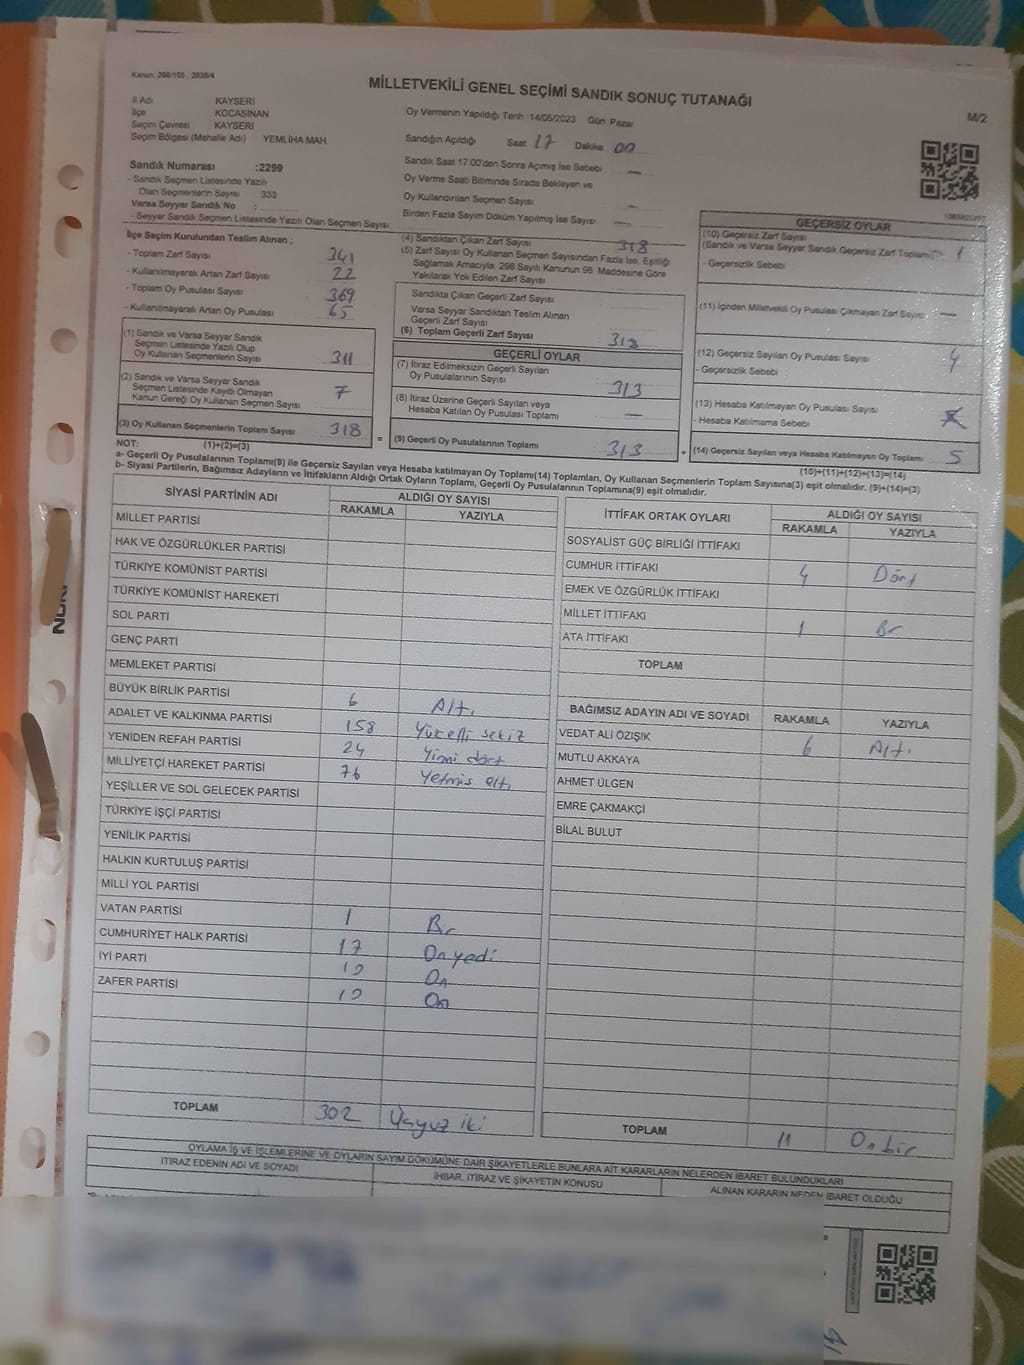 Kanun: 298/105 ; 2839/4
MİLLETVEKİLİ GENEL SEÇİMİ SANDIK SONUÇ TUTANAĞI
M/2
İl Adı KAYSERİ
İlçe KOCASİNAN
Seçim Çevresi KAYSERİ
Seçim Bölgesi (Mahalle Adı) YEMLİHA MAH.
Sandık Numarası :2299
- Sandık Seçmen Listesinde Yazılı
Olan Seçmenlerin Sayısı 333
Varsa Seyyar Sandık No :
- Seyyar Sandık Seçmen Listesinde Yazılı Olan Seçmen Sayısı
Oy Vermenin Yapıldığı Tarih :14/05/2023 Gün: Pazar
Sandığın Açıldığı Saat 17 Dakika 00
Sandık Saat 17:00'den Sonra Açılmış İse Sebebi —
Oy Verme Saati Bitiminde Sırada Bekleyen ve
Oy Kullandırılan Seçmen Sayısı —
Birden Fazla Sayım Döküm Yapılmış İse Sayısı —
İlçe Seçim Kurulundan Teslim Alınan ;
- Toplam Zarf Sayısı 341
- Kullanılmayarak Artan Zarf Sayısı 22
- Toplam Oy Pusulası Sayısı 369
- Kullanılmayarak Artan Oy Pusulası 65
(1) Sandık ve Varsa Seyyar Sandık
Seçmen Listesinde Yazılı Olup
Oy Kullanan Seçmenlerin Sayısı 311
(2) Sandık ve Varsa Seyyar Sandık
Seçmen Listesinde Kayıtlı Olmayan
Kanun Gereği Oy Kullanan Seçmen Sayısı 7
(3) Oy Kullanan Seçmenlerin Toplam Sayısı 318
(4) Sandıktan Çıkan Zarf Sayısı 318
(5) Zarf Sayısı Oy Kullanan Seçmen Sayısından Fazla İse, Eşitliği
Sağlamak Amacıyla, 298 Sayılı Kanunun 98. Maddesine Göre
Yakılarak Yok Edilen Zarf Sayısı
Sandıkta Çıkan Geçerli Zarf Sayısı
Varsa Seyyar Sandıktan Teslim Alınan
Geçerli Zarf Sayısı
(6) Toplam Geçerli Zarf Sayısı
GEÇERLİ OYLAR
(7) İtiraz Edilmeksizin Geçerli Sayılan
Oy Pusulalarının Sayısı 313
(8) İtiraz Üzerine Geçerli Sayılan veya
Hesaba Katılan Oy Pusulası Toplamı —
= (9) Geçerli Oy Pusulalarının Toplamı 313 +
GEÇERSİZ OYLAR
(10) Geçersiz Zarf Sayısı
(Sandık ve Varsa Seyyar Sandık Geçersiz Zarf Toplamı) 1
- Geçersizlik Sebebi
(11) İçinden Milletvekili Oy Pusulası Çıkmayan Zarf Sayısı —
(12) Geçersiz Sayılan Oy Pusulası Sayısı 4
- Geçersizlik Sebebi
(13) Hesaba Katılmayan Oy Pusulası Sayısı
- Hesaba Katılmama Sebebi
(14) Geçersiz Sayılan veya Hesaba Katılmayan Oy Toplamı 5
NOT: (1)+(2)=(3)
(10)+(11)+(12)+(13)=(14)
a- Geçerli Oy Pusulalarının Toplamı(9) ile Geçersiz Sayılan veya Hesaba katılmayan Oy Toplamı(14) Toplamları, Oy Kullanan Seçmenlerin Toplam Sayısına(3) eşit olmalıdır. (9)+(14)=(3)
b- Siyasi Partilerin, Bağımsız Adayların ve İttifakların Aldığı Ortak Oyların Toplamı, Geçerli Oy Pusulalarının Toplamına(9) eşit olmalıdır.
SİYASİ PARTİNİN ADI ALDIĞI OY SAYISI
RAKAMLA YAZIYLA
MİLLET PARTİSİ
HAK VE ÖZGÜRLÜKLER PARTİSİ
TÜRKİYE KOMÜNİST PARTİSİ
TÜRKİYE KOMÜNİST HAREKETİ
SOL PARTİ
GENÇ PARTİ
MEMLEKET PARTİSİ
BÜYÜK BİRLİK PARTİSİ 6 Altı
ADALET VE KALKINMA PARTİSİ 158 Yüzelli sekiz
YENİDEN REFAH PARTİSİ 24 Yirmi dört
MİLLİYETÇİ HAREKET PARTİSİ 76 Yetmiş altı
YEŞİLLER VE SOL GELECEK PARTİSİ
TÜRKİYE İŞÇİ PARTİSİ
YENİLİK PARTİSİ
HALKIN KURTULUŞ PARTİSİ
MİLLİ YOL PARTİSİ
VATAN PARTİSİ 1 Bir
CUMHURİYET HALK PARTİSİ 17 On yedi
İYİ PARTİ 10 On
ZAFER PARTİSİ 10 On
TOPLAM 302 Üçyüz iki
İTTİFAK ORTAK OYLARI ALDIĞI OY SAYISI
RAKAMLA YAZIYLA
SOSYALİST GÜÇ BİRLİĞİ İTTİFAKI
CUMHUR İTTİFAKI 4 Dört
EMEK VE ÖZGÜRLÜK İTTİFAKI
MİLLET İTTİFAKI 1 Bir
ATA İTTİFAKI
TOPLAM
BAĞIMSIZ ADAYIN ADI VE SOYADI RAKAMLA YAZIYLA
VEDAT ALİ ÖZIŞIK 6 Altı
MUTLU AKKAYA
AHMET ÜLGEN
EMRE ÇAKMAKÇİ
BİLAL BULUT
TOPLAM 11 On bir
OYLAMA İŞ VE İŞLEMLERİNE VE OYLARIN SAYIM DÖKÜMÜNE DAİR ŞİKAYETLERLE BUNLARA AİT KARARLARIN NELERDEN İBARET BULUNDUKLARI
İTİRAZ EDENİN ADI VE SOYADI İHBAR, İTİRAZ VE ŞİKAYETİN KONUSU ALINAN KARARIN NEDEN İBARET OLDUĞU